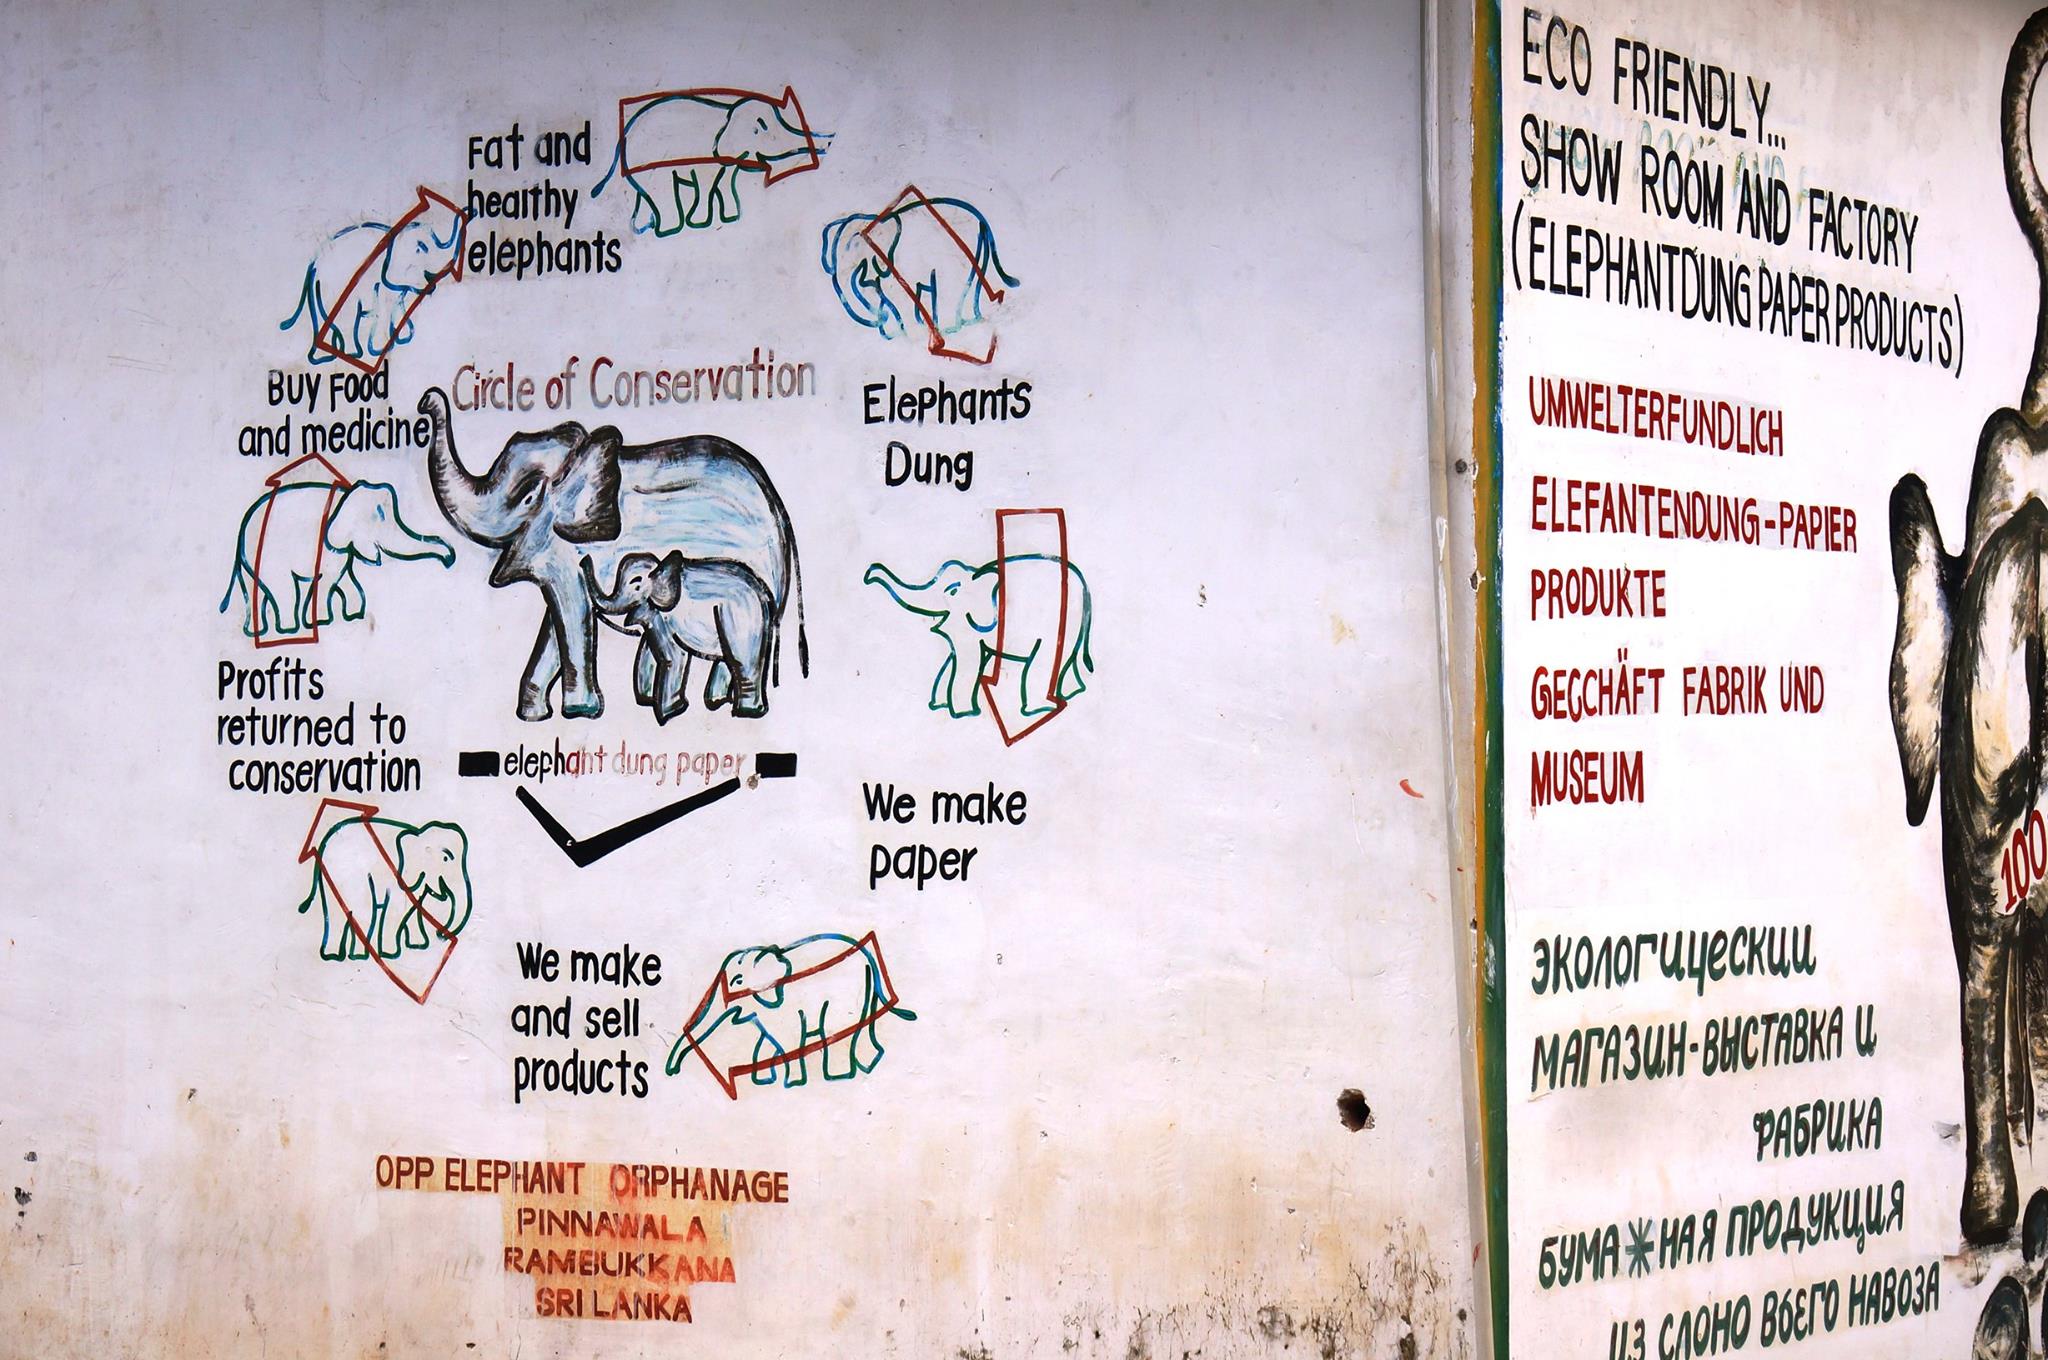 Fat and
healthy
elephants
Elephants
Dung
We make
paper
We make
and sell
products
Profits
returned to
conservation
Buy Food
and medicine
Circle of Conservation
elephant dung paper
OPP ELEPHANT ORPHANAGE
PINNAWALA
RAMBUKKANA
SRI LANKA
ECO FRIENDLY...
SHOW ROOM AND FACTORY
(ELEPHANTDUNG PAPER PRODUCTS)
UMWELTERFUNDLICH
ELEFANTENDUNG-PAPIER
PRODUKTE
GEGCHÄFT FABRIK UND
MUSEUM
100
ЭКОЛОГИЦЕСКИИ
МАГАЗИН-ВЫСТАВКА И
ФАБРИКА
БУМАЖНАЯ ПРОДУКЦИЯ
ИЗ СЛОНО ВЬЕГО НАВОЗА